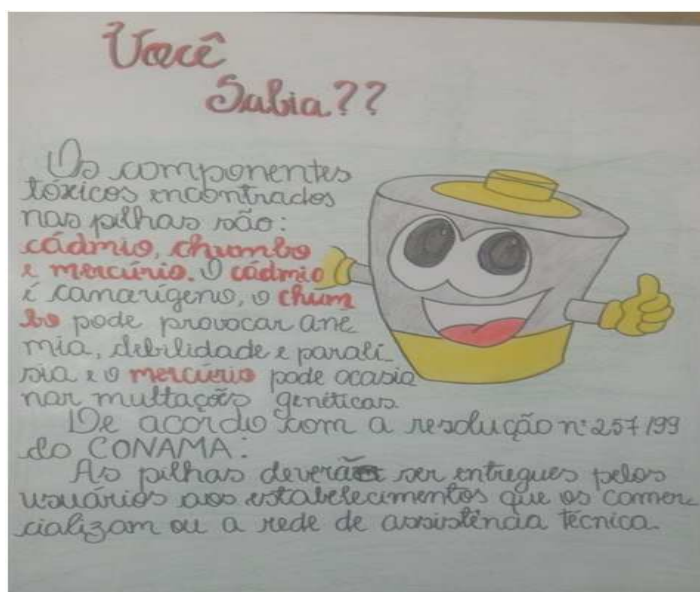 Você
Sabia??
Os componentes
tóxicos encontrados
nas pilhas são:
cádmio, chumbo
e mercúrio. O cádmio
é canarígeno, o chum
bo pode provocar ane
mia, debilidade e parali
sia e o mercúrio pode ocasio
nar multações genéticas.
De acordo com a resolução nº 257/99
do CONAMA:
As pilhas deverão ser entregues pelos
usuários aos estabelecimentos que os comer
cializam ou a rede de assistência técnica.